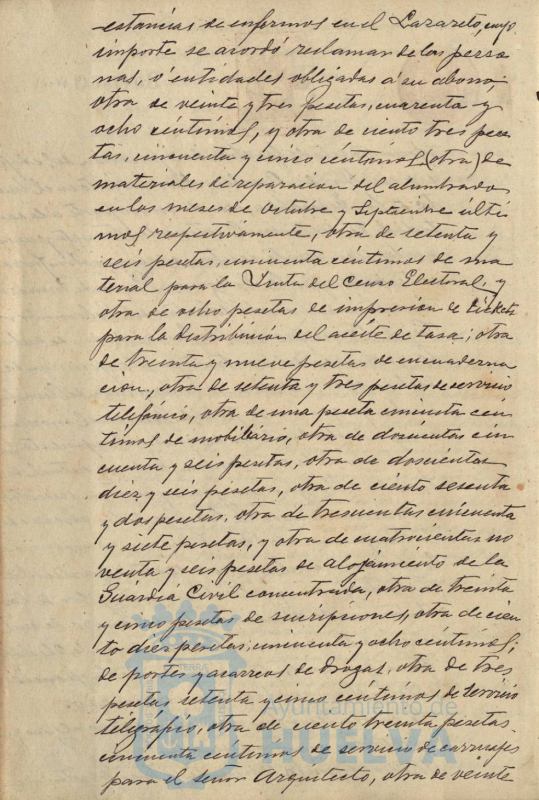 estancias de enfermos en el Lazareto, cuyo
importe se acordó reclamar de las perso
nas, o entidades obligadas á su abono,
otra de veinte y tres pesetas, cuarenta y
ocho céntimos, y otra de ciento tres pese
tas, cincuenta y cinco céntimos (otra) de
materiales de reparacion del alumbrado
en los meses de Octubre y Septiembre últi
mos respectivamente, otra de setenta y
seis pesetas, cincuenta céntimos de ma
terial para la Junta del Censo Electoral, y
otra de ocho pesetas de impresion de tickets
para la distribución del aceite de tasa; otra
de treinta y nueve pesetas de encuaderna
cion, otra de setenta y tres pesetas de servicio
telefónico, otra de una peseta cincuenta cén
timos de mobiliario, otra de doscientas cin
cuenta y seis pesetas, otra de doscientas
diez y seis pesetas, otra de ciento sesenta
y dos pesetas, otra de trescientas cincuenta
y siete pesetas, y otra de cuatrocientas no
venta y seis pesetas de alojamiento de la
Guardia Civil concentrada, otra de treinta
y cinco pesetas de suscripciones, otra de cien
to diez pesetas, cincuenta y ocho céntimos;
de portes y acarreos de drogas, otra de tres
pesetas setenta y cinco céntimos de servicio
telegráfico, otra de ciento treinta pesetas
cincuenta centimos de servicio de carruajes
para el señor Arquitecto, otra de veinte
Ayuntamiento de
HUELVA